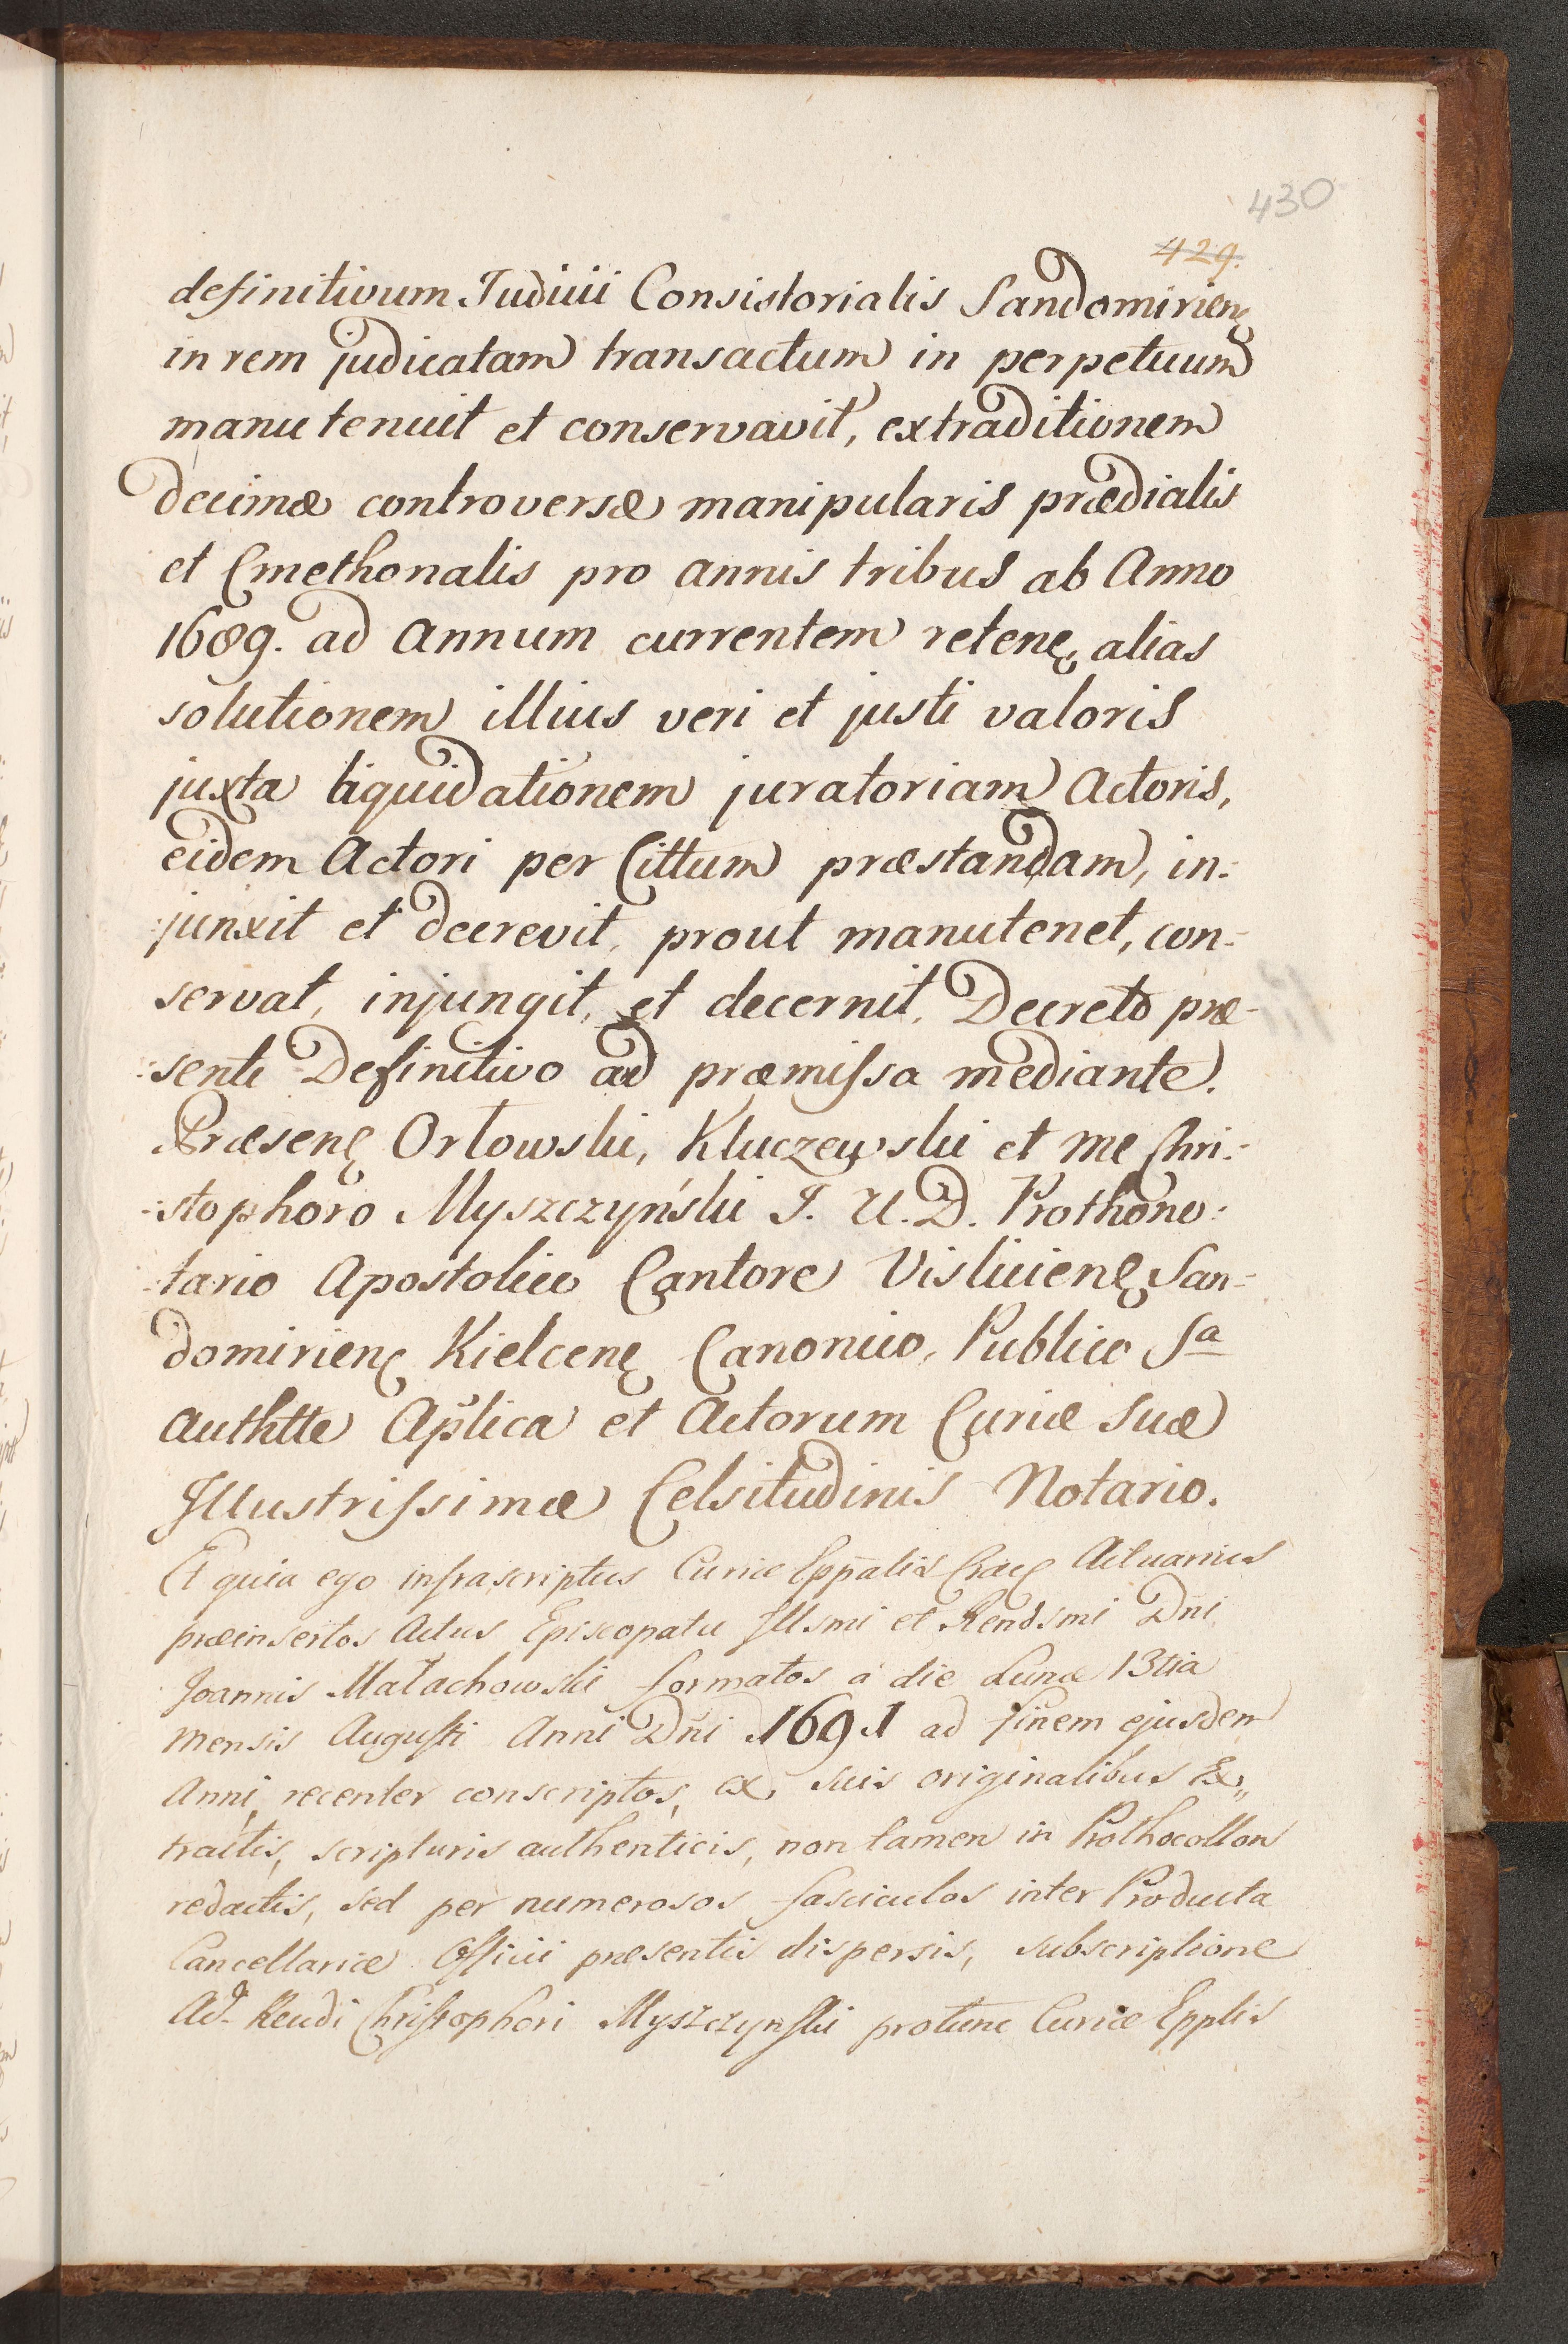 430
429.
definitivum Judicii Consistorialis Sandomirienȩ
in rem judicatam transactum in perpetuum
manutenuit et conservavit, extraditionem
decimæ controversæ manipularis prædialis
et Cmethonalis pro annis tribus ab Anno
1689. ad Annum currentem retenȩ, alias
solutionem illius veri et justi valoris
juxta liquidationem juratoriam Actoris,
eidem Actori per Cittum præstandam, in:
:junxit et decrevit, prout manutenet, con:
servat, injungit, et decernit, Decreto præ:
:senti Definitivo ad præmissa mediante.
Præsenȩ Orłowski, Kluczewski et me Chri:
:stophoro Myszczyński J. U. D. Prothono:
:tario Apostolico Cantore Vislicienȩ San:
domirienȩ Kielcenȩ Canonico, Publico Sa
Authtte Aplica et Actorum Curiæ Suæ
Illustrissimæ Celsitudinis Notario.
Et quia ego infrascriptus Curiæ Eppalis Cracȩ Actuarius
præinsertos Actus Episcopatu Illsmi et Rendsmi Dni
Joannis Małachowski formatos a die Lunæ 13tia
mensis Augusti Anni Dni 1691 ad finem ejusdem
Anni, recenter conscriptos, ex suis originalibus Ex„
tractis, scripturis authenticis, non tamen in Prothocollon
redactis, sed per numerosos fasciculos inter Producta
Cancellariæ Officii præsentis dispersis, subscriptione
Ad. Reudi Christophori Myszczynski protunc Curiæ Epplis